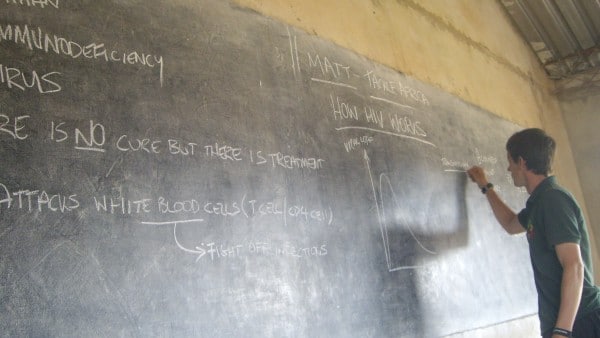 MMUNODEFICIENCY
IRUS
RE IS NO CURE BUT THERE IS TREATMENT
ATTACKS WHITE BLOOD CELLS (T CELL/CD4 CELL)
→ FIGHT OFF INFECTIONS
MATT - TACKLE AFRICA
HOW HIV WORKS